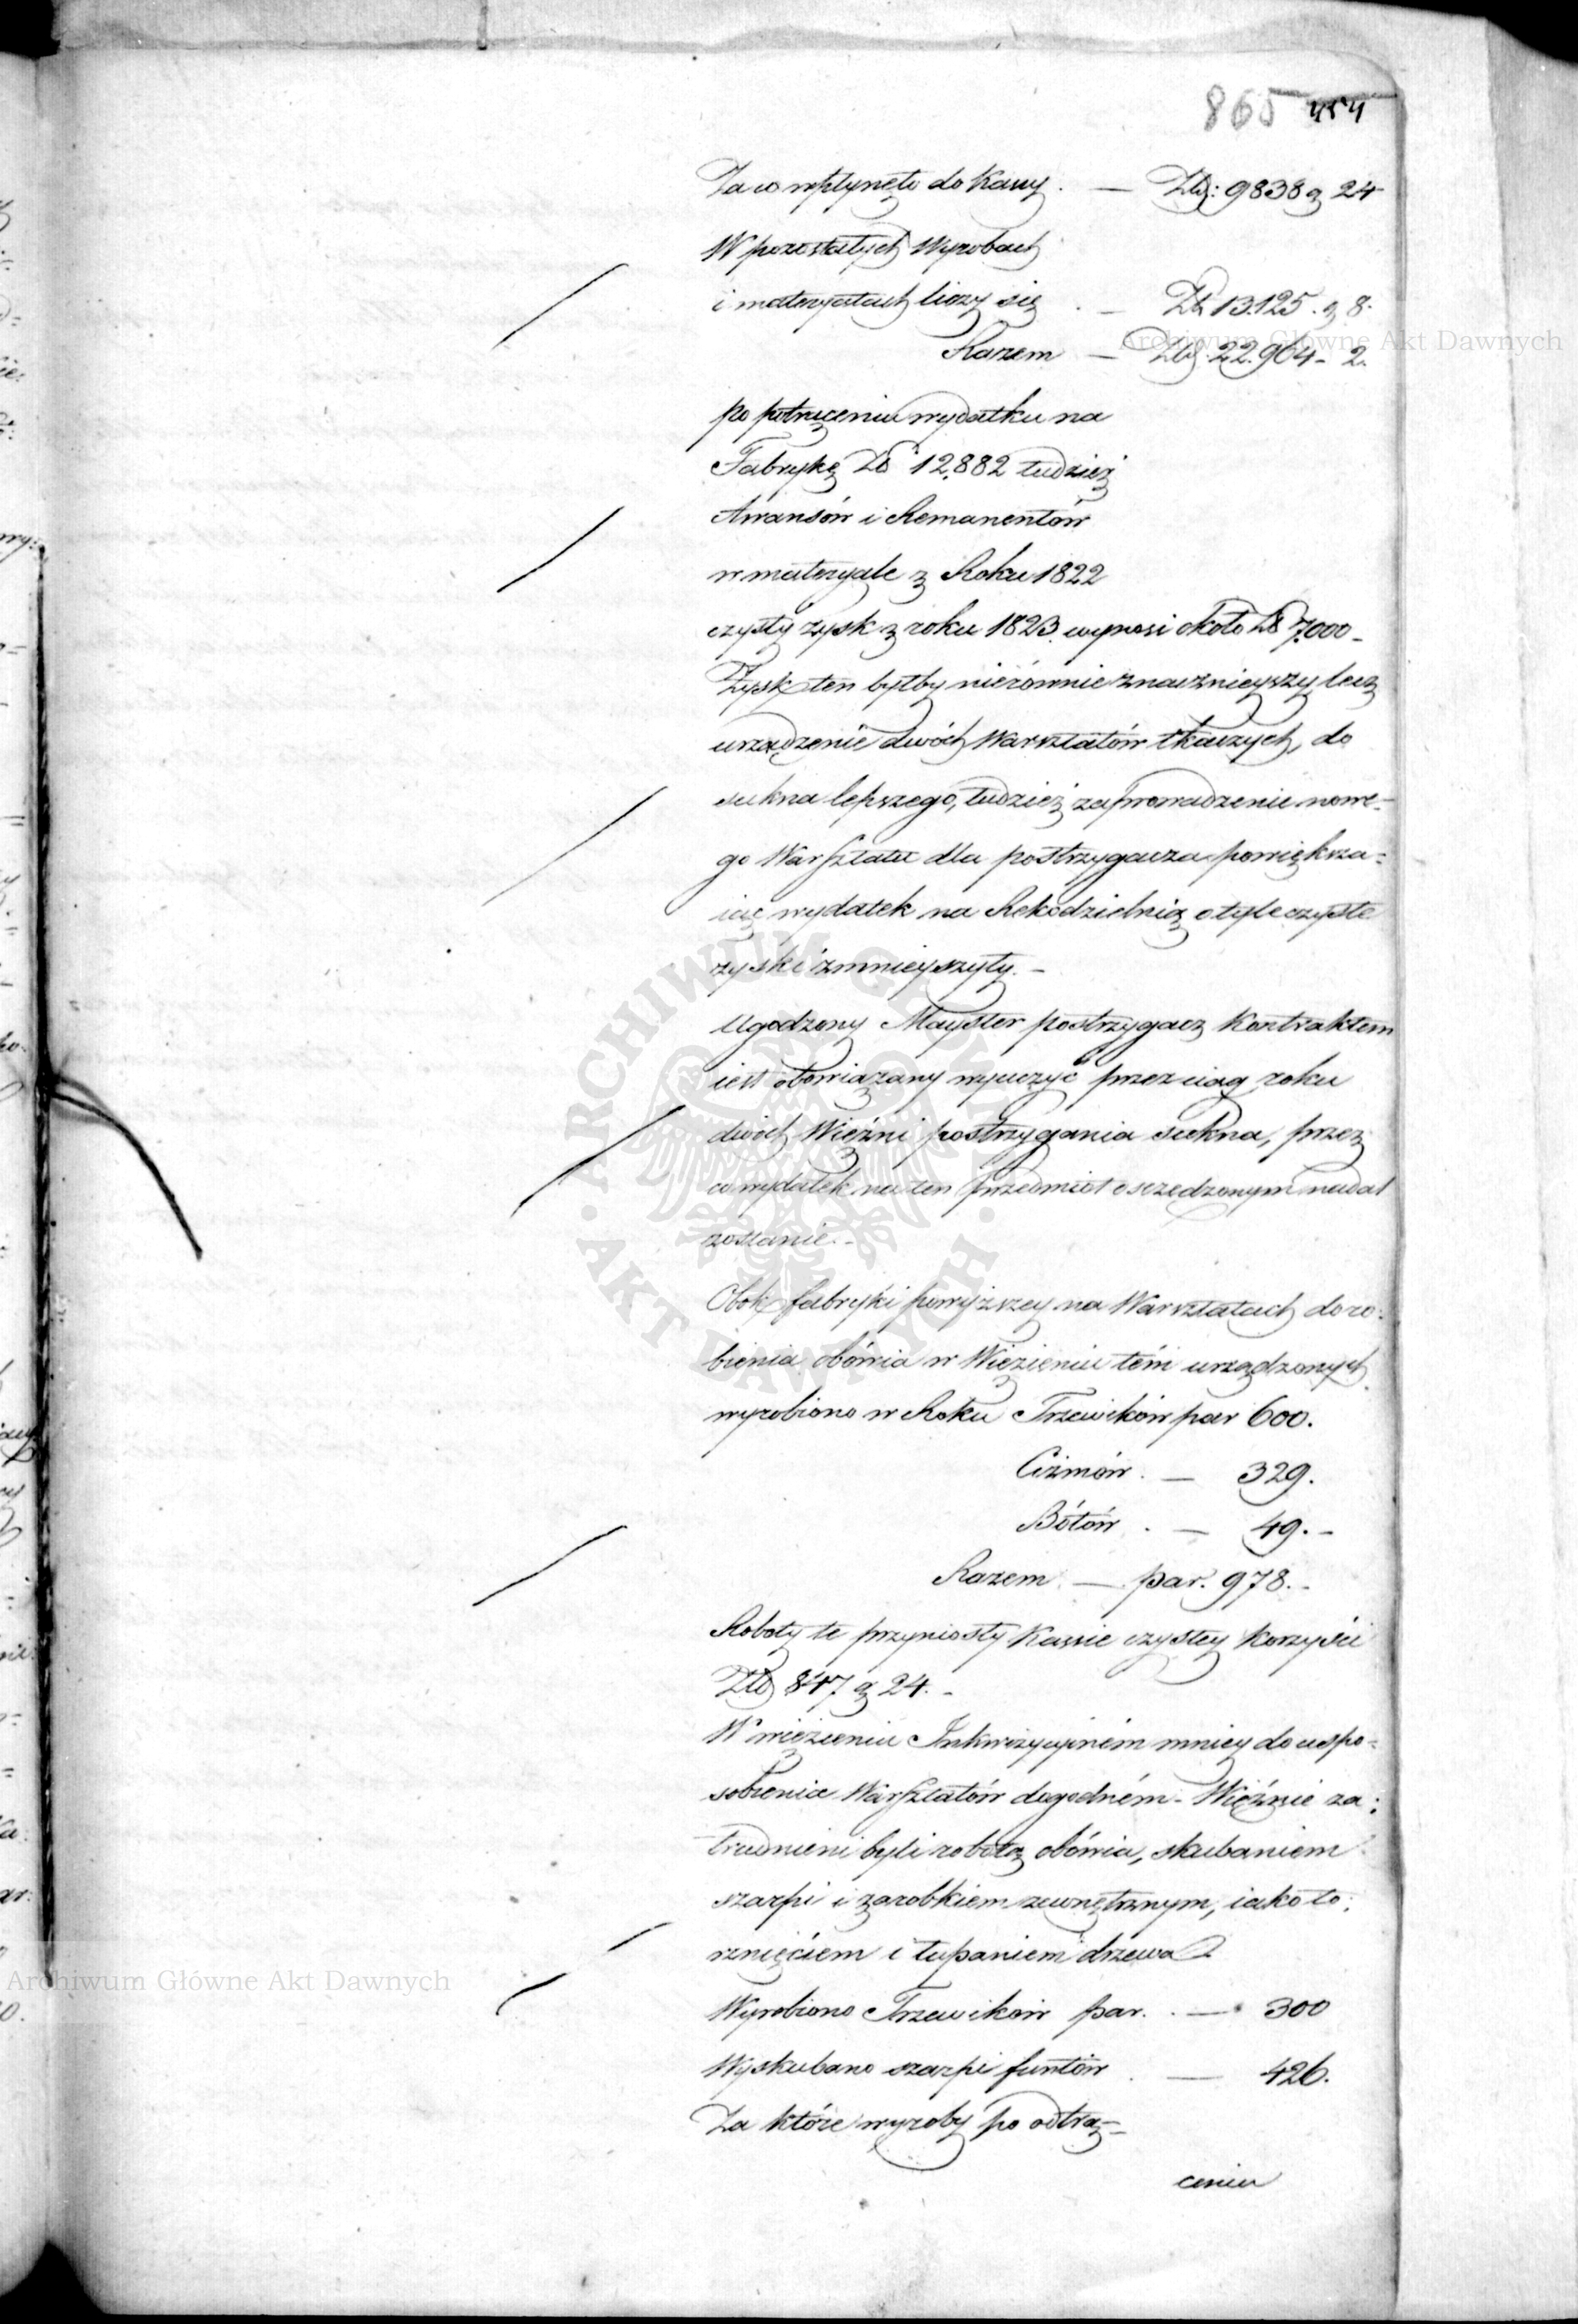 865 454
Za co wpłynęło do Kassy. — Złp: 9838 g 24
W pozostałych Wyrobach
i materyałach liczy się . — Zł. 13.125. g 8.
Archiwum Główne Akt Dawnych
Razem — Złp. 22.964 - 2.
po potrąceniu wydatku na
Fabrykę Zł 12,882 tudzież
Awansów i Remanentów
w materyale z Roku 1822
czysty zysk z roku 1823. wynosi około Zł 7,000 -
Zysk ten byłby nierównie znacznieyszy, lecz
urządzenie dwóch Warsztatów tkaczych, do
sukna lepszego, tudzież zaprowadzenie nowe-
go Warsztatu dla postrzygacza powiększa-
iąc wydatek na Rekodzielnią o tyle czyste
zyski zmnieyszyły. -
Ugodzony Mayster postrzygacz Kontraktem
iest obowiązany wyuczyć przez ciąg roku
dwóch Więźni postrzygania sukna, przez
co wydatek na ten przedmiot oszczędzonym nadal
zostanie. -
Obok fabryki powyższey na Warsztatach do ro-
bienia obówia w Więzieniu tém urządzonych
wyrobiono w Roku Trzewików par 600.
Ciżmów. — 329.
Bótów . — 49. -
Razem — par. 978. -
Roboty te przyniosły Kassie czystey korzyści
Złp 847 g 24. -
W więzieniu Inkwizycyiném mniey do uspo-
sobienia Warsztatów dogodném - Więźnie za-
trudnieni byli robotą obówia, skubaniem
szarpi i zarobkiem zewnętrznym, iako to:
rznięciem i łupaniem drzewa
Archiwum Główne Akt Dawnych
Wyrobiono Trzewików par. . — 300
Wyskubano szarpi funtów . — 426.
Za które wyroby po odtrą-
ceniu
ARCHIWUM GŁÓWNE · AKT DAWNYCH ·